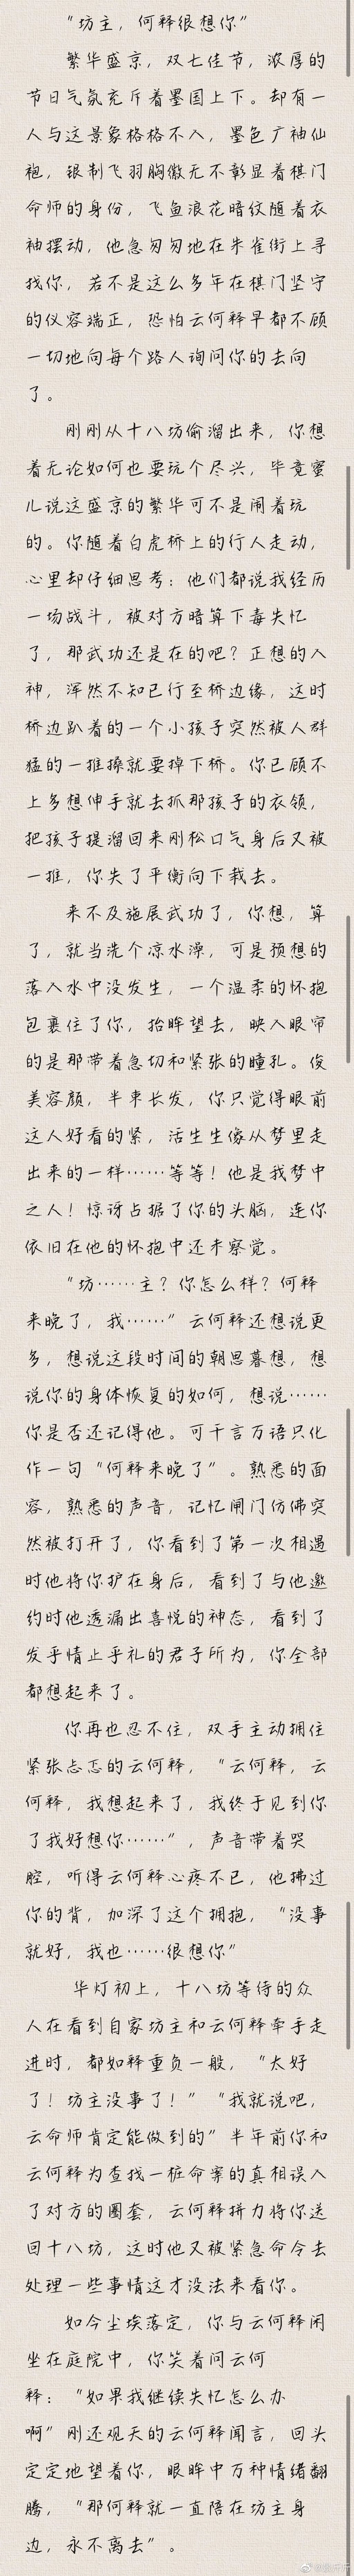 “坊主，何释很想你”
繁华盛京，双七佳节，浓厚的
节日气氛充斥着墨国上下。却有一
人与这景象格格不入，墨色广袖仙
袍，银制飞羽胸徽无不彰显着棋门
命师的身份，飞鱼浪花暗纹随着衣
袖摆动，他急匆匆地在朱雀街上寻
找你，若不是这么多年在棋门坚守
的仪容端正，恐怕云何释早都不顾
一切地向每个路人询问你的去向
了。
刚刚从十八坊偷溜出来，你想
着无论如何也要玩个尽兴，毕竟蜜
儿说这盛京的繁华可不是闹着玩
的。你随着白虎桥上的行人走动，
心里却仔细思考：他们都说我经历
一场战斗，被对方暗算下毒失忆
了，那武功还是在的吧？正想的入
神，浑然不知已行至桥边缘，这时
桥边趴着的一个小孩子突然被人群
猛的一推搡就要掉下桥。你已顾不
上多想伸手就去抓那孩子的衣领，
把孩子提溜回来刚松口气身后又被
一推，你失了平衡向下栽去。
来不及施展武功了，你想，算
了，就当洗个凉水澡，可是预想的
落入水中没发生，一个温柔的怀抱
包裹住了你，抬眸望去，映入眼帘
的是那带着急切和紧张的瞳孔。俊
美容颜，半束长发，你只觉得眼前
这人好看的紧，活生生像从梦里走
出来的一样……等等！他是我梦中
之人！惊讶占据了你的头脑，连你
依旧在他的怀抱中还未察觉。
“坊……主？你怎么样？何释
来晚了，我……”云何释还想说更
多，想说这段时间的朝思暮想，想
说你的身体恢复的如何，想说……
你是否还记得他。可千言万语只化
作一句“何释来晚了”。熟悉的面
容，熟悉的声音，记忆闸门仿佛突
然被打开了，你看到了第一次相遇
时他将你护在身后，看到了与他邀
约时他透漏出喜悦的神态，看到了
发乎情止乎礼的君子所为，你全部
都想起来了。
你再也忍不住，双手主动拥住
紧张忐忑的云何释，“云何释，云
何释，我想起来了，我终于见到你
了我好想你……”，声音带着哭
腔，听得云何释心疼不已，他拂过
你的背，加深了这个拥抱，“没事
就好，我也……很想你”
华灯初上，十八坊等待的众
人在看到自家坊主和云何释牵手走
进时，都如释重负一般，“太好
了！坊主没事了！”“我就说吧，
云命师肯定能做到的”半年前你和
云何释为查找一桩命案的真相误入
了对方的圈套，云何释拼力将你送
回十八坊，这时他又被紧急命令去
处理一些事情这才没法来看你。
如今尘埃落定，你与云何释闲
坐在庭院中，你笑着问云何
释：“如果我继续失忆怎么办
啊”刚还观天的云何释闻言，回头
定定地望着你，眼眸中万种情绪翻
腾，“那何释就一直陪在坊主身
边，永不离去”。